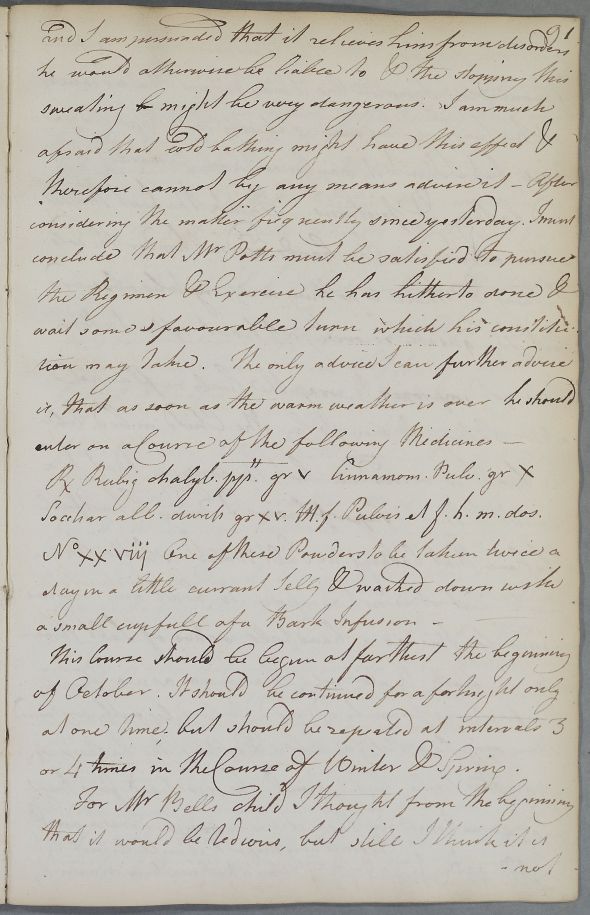 91
and I am persuaded that it relieves him from disorders
he would otherwise be liable to & the stopping this
sweating might be very dangerous. I am much
afraid that cold bathing might have this effect &
therefore cannot by any means advise it - After
considering the matter frequently since yesterday. I must
conclude that Mr Potts must be satisfied to pursue
the Regimen & Exercise he has hitherto done &
wait some favourable turn which his constitu-
tion may take. The only advice I can further advise
is, that as soon as the warm weather is over he should
enter on a Course of the following Medicines -
℞ Rubig chalyb. ppt. gr v Cinnamom. Pulv. gr X
Sacchar alb. gr xv. M.f. Pulvis et f. h. m. dos.
No xxviij One of these Powders to be taken twice a
day in a little currant Jelly & washed down with
a small cupfull of a Bark Infusion -
This Course should be begun at farthest the beginning
of October. It should be continued for a fortnight only
at one time, but should be repeated at intervals 3
or 4 times in the Course of Winter & Spring.
For Mr Bells child I thought from the beginning
that it would be tedious, but still I think it is
- not